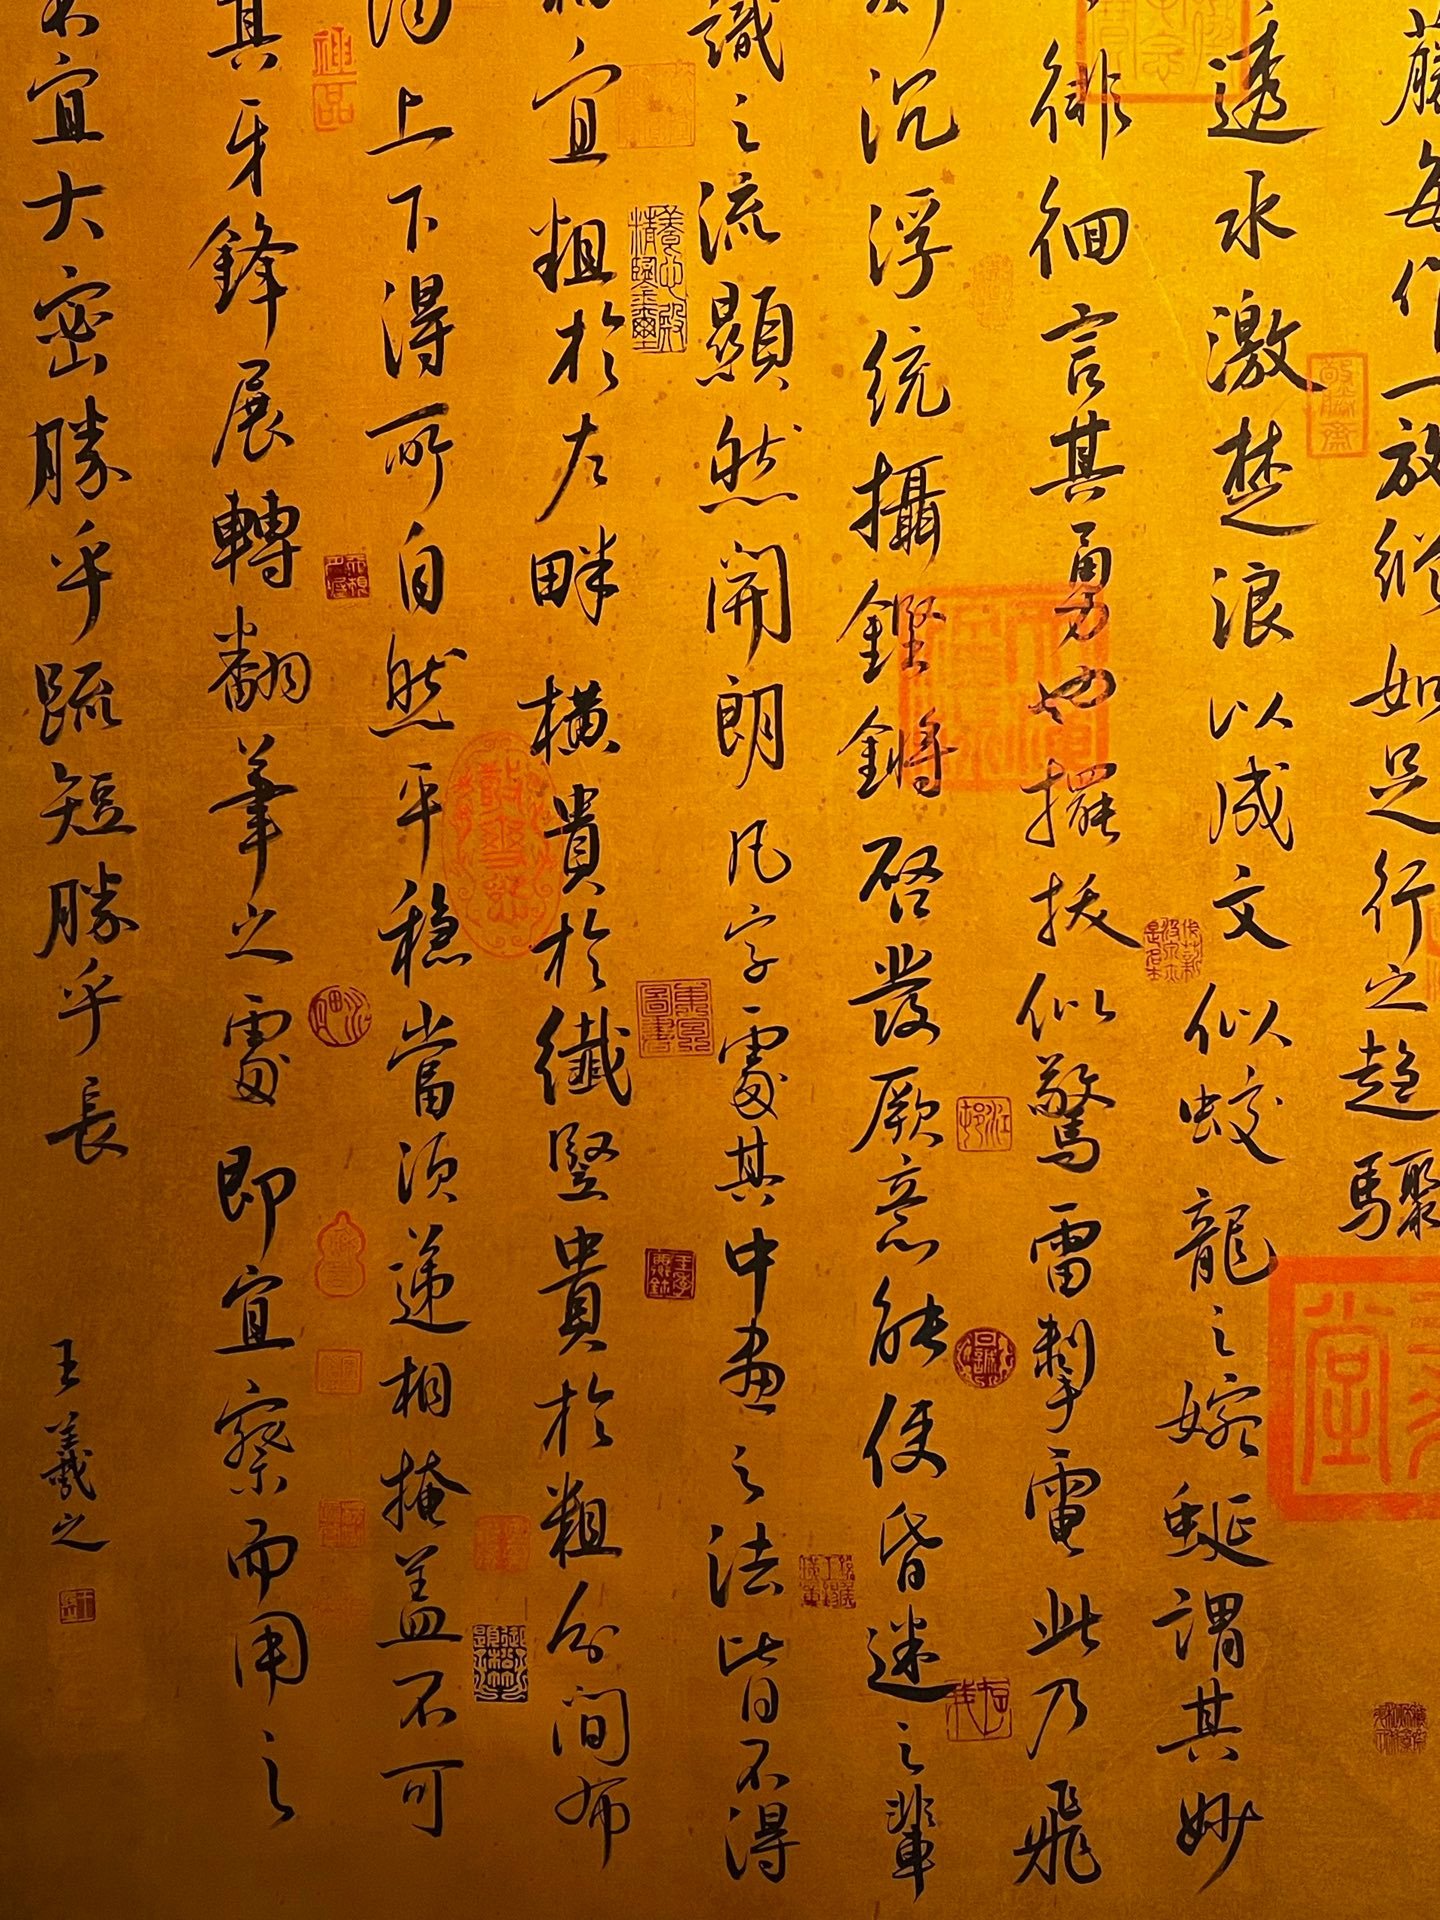 藤每作一放縱如足行之趨驟
透水激楚浪以成文似蛟龍之婉蜒謂其妙
徘徊言其勇也擺撥似驚雷掣電此乃飛
沉浮統攝鏗鏘啓發厥意能使昏迷之輩
識之流顯然開朗凡字處其中畫之法皆不得
宜粗於左畔橫貴於纖竪貴於粗分間布
上下得所自然平穩當須遞相掩盖不可
其牙鋒展轉翻筆之處即宜察而用之
宜大密勝乎踈短勝乎長
王羲之